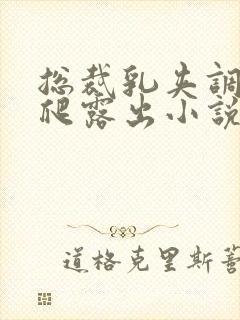 总裁乳失調
爬露出小說
道格克里斯蒂